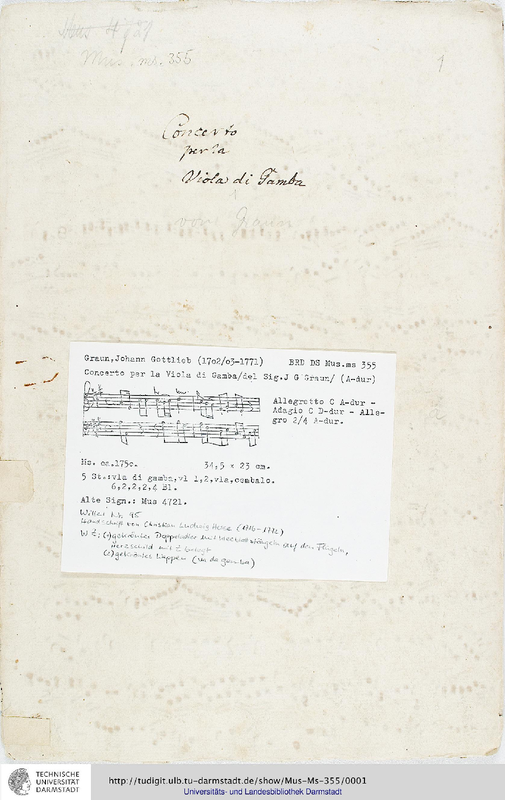 Mus 4721
Mus. nr. 355
1
Concerto
per la
Viola di Gamba
von Graun
Graun,Johann Gottlieb (17o2/o3-1771) BRD DS Mus.ms 355
Concerto per la Viola di Gamba/del Sig.J G Graun/ (A-dur)
Allegretto C A-dur -
Adagio C D-dur - Alle-
gro 2/4 A-dur.
Hs. ca.175o. 34,5 x 23 cm.
5 St.:via di gamba,vl 1,2,vla,cembalo.
6,2,2,2,4 Bl.
Alte Sign.: Mus 4721.
Handschrift von Christian Ludwig Hesse (1716-1772)
WZ: (a) gekrönter Doppeladler mit auf den Flügeln,
Herzschild mit Z belegt
(c) gekröntes Wappen (in da gamba)
TECHNISCHE
UNIVERSITÄT
DARMSTADT
http://tudigit.ulb.tu-darmstadt.de/show/Mus-Ms-355/0001
Universitäts- und Landesbibliothek Darmstadt